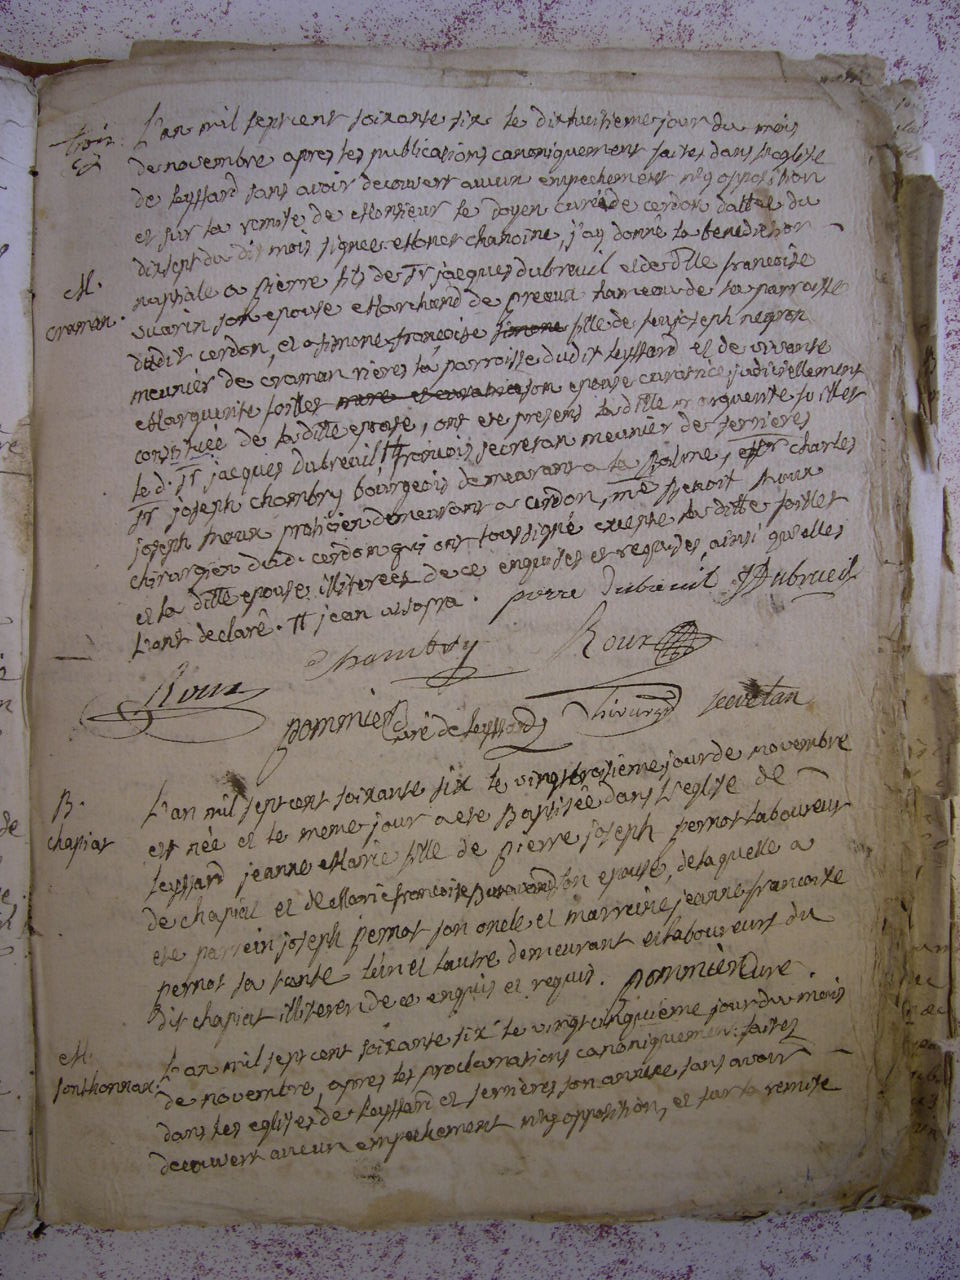 trois
L'an mil sept cent soixante six le dixhuitieme jour du mois
de novembre apres les publications canoniquement faites dans l'eglise
de Leyssard sans avoir decouvert aucun empechement ny opposition
et sur la remise de Monsieur le doyen curé de cerdon dattée du
dixsept du dit mois signée chanoine, j'ay donné la benediction
M.
craman.
nuptiale a pierre fils de Sr jacques dubreuil et de dlle francoise
son epouse Marchand de preaux hameau de la parroisse
dudit cerdon, et a simone francoise simone fille de feu joseph negron
meunier de craman rieres la parroisse dudit leyssard et de vivante
Marguerite soillet son epouse curatrice judiciellement
constituée de la ditte epouse, ont eté presens la ditte marguerite soillet
le d. Sr jacques dubreuil # francois secretan meunier de serrieres
Sr joseph chambry bourgeois demeurant a la Balme, Sr charles
joseph roux praticien demeurant a cerdon, me Benoit Roux
chirurgien dud. cerdon qui ont tous signé excepté la ditte soillet
et la ditte epouse illiterées de ce enquises et requises, ainsi qu'elles
l'ont declaré. # jean
pierre Dubreuil JDubrueil
Chambry Roux
Roux
pommier curé de Leyssard secretan
B.
chapiat
L'an mil sept cent soixante six le vingt troisieme jour de novembre
est née et le meme jour a eté Baptisée dans L'eglise de
Leyssard jeanne Marie fille de pierre joseph pernot laboureur
de chapiat et de Marie francoise son epouse, de laquelle a
eté parrein joseph pernot son oncle et marraine jeanne francoise
pernot sa tante l'un et l'autre demeurant et laboureurs du
dit chapiat illiteres de ce enquis et requis. pommier curé.
M.
sonthonnax.
L'an mil sept cent soixante six le vingt cinquième jour du mois
de novembre, apres les proclamations canoniquement faites
dans les eglises de leyssard et serrières son annexe sans avoir
decouvert aucun empechement ny opposition, et sur la remise